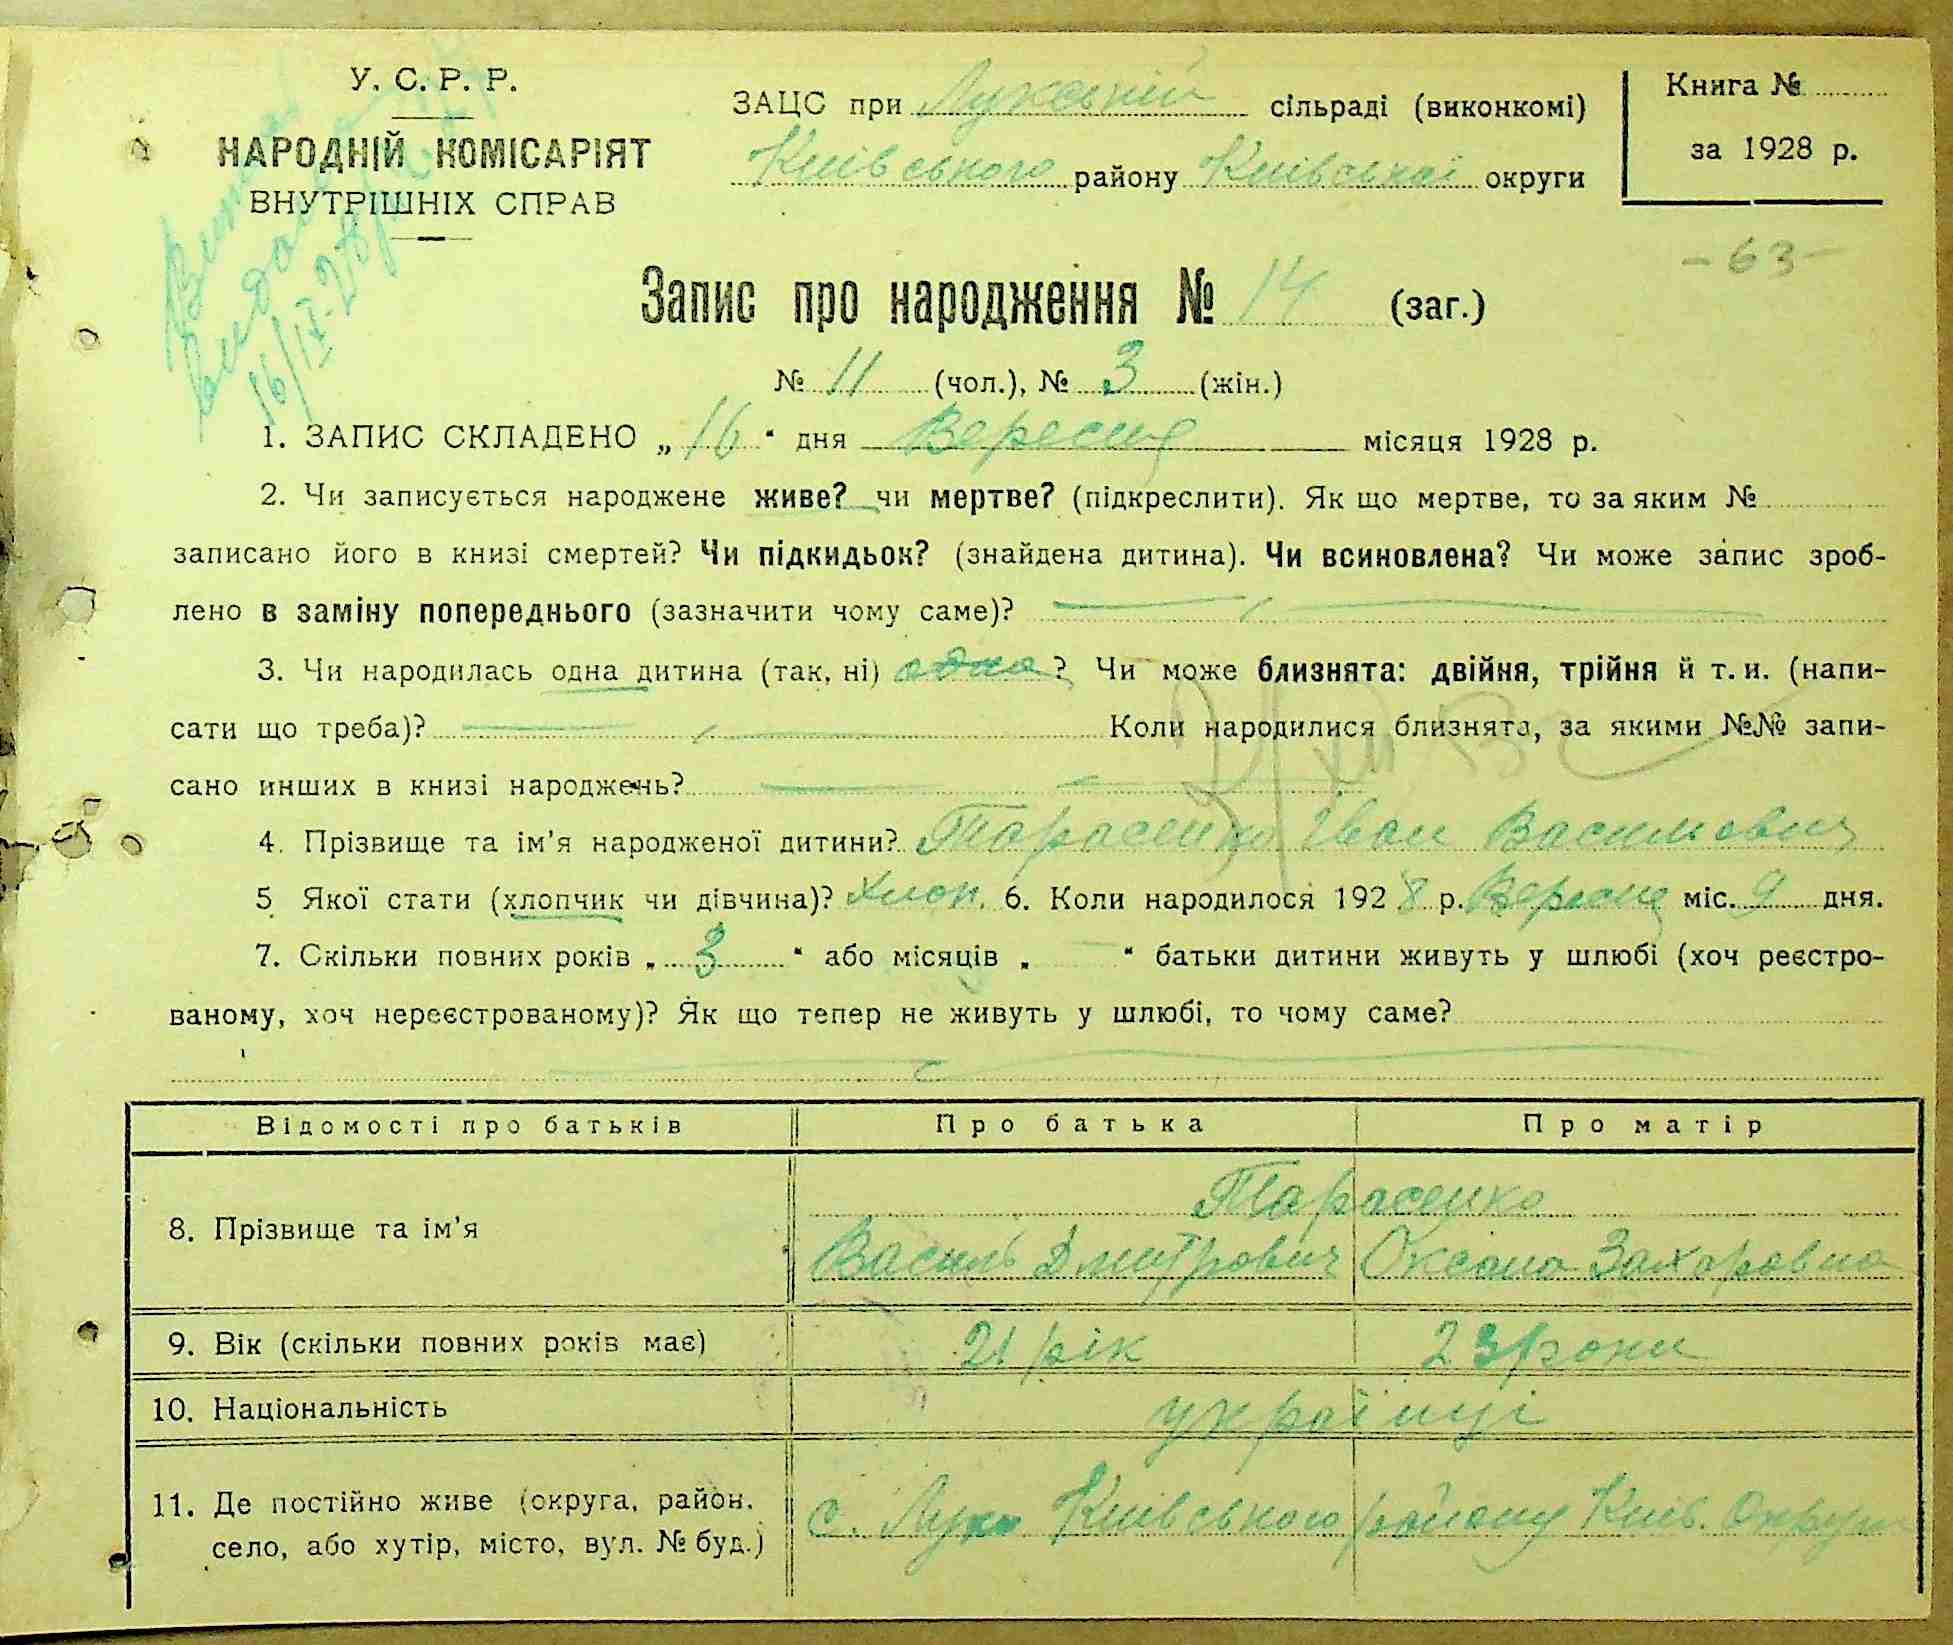 У. С. Р. Р.
НАРОДНІЙ КОМІСАРІЯТ
ВНУТРІШНІХ СПРАВ
видано
16/IX-28
ЗАЦС при Лукській сільраді (виконкомі)
Київського району Київської округи
Книга №
за 1928 р.
-63-
Запис про народження № 14 (заг.)
№ 11 (чол.), № 3 (жін.)
1. ЗАПИС СКЛАДЕНО „ 16 “ дня Вересня місяця 1928 р.
2. Чи записується народжене живе? чи мертве? (підкреслити). Як що мертве, то за яким №
записано його в книзі смертей? Чи підкидьок? (знайдена дитина). Чи всиновлена? Чи може запис зроб-
лено в заміну попереднього (зазначити чому саме)?
3. Чи народилась одна дитина (так, ні) одна? Чи може близнята: двійня, трійня й т. и. (напи-
сати що треба)? Коли народилися близнята, за якими №№ запи-
сано инших в книзі народжень?
4. Прізвище та ім’я народженої дитини? Тарасенко Іван Васильович
5 Якої стати (хлопчик чи дівчина)? Хлоп. 6. Коли народилося 1928 р. Вересня міс. 9 дня.
7. Скільки повних років „ 3 “ або місяців „ “ батьки дитини живуть у шлюбі (хоч реєстро-
ваному, хоч нереєстрованому)? Як що тепер не живуть у шлюбі, то чому саме?
Відомості про батьків Про батька Про матір
8. Прізвище та ім’я
Тарасенко
Василь Дмитрович Оксана Захаровна
9. Вік (скільки повних років має) 21 рік 23 роки
10. Національність українці
11. Де постійно живе (округа, район, село, або хутір, місто, вул. № буд.)
с. Лука Київського району Київ. Округи